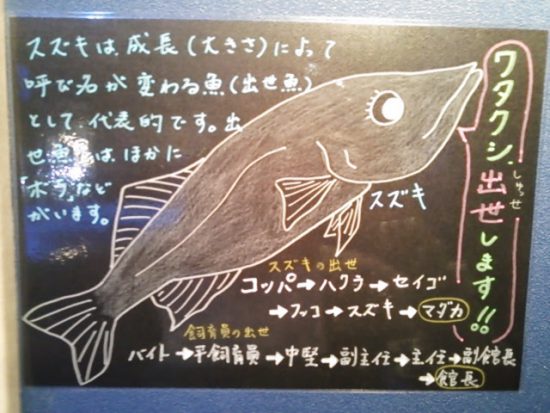 スズキは、成長(大きさ)によって
呼び名が変わる魚(出世魚)
として代表的です。出
世魚はほかに
「ボラ」など
がいます。
ワタクシ、出世します!!
しゅっせ
スズキ
スズキの出世
コッパ→ハクラ→セイゴ
→フッコ→スズキ→マダカ
飼育員の出世
バイト→平飼育員→中堅→副主任→主任→副館長
→館長